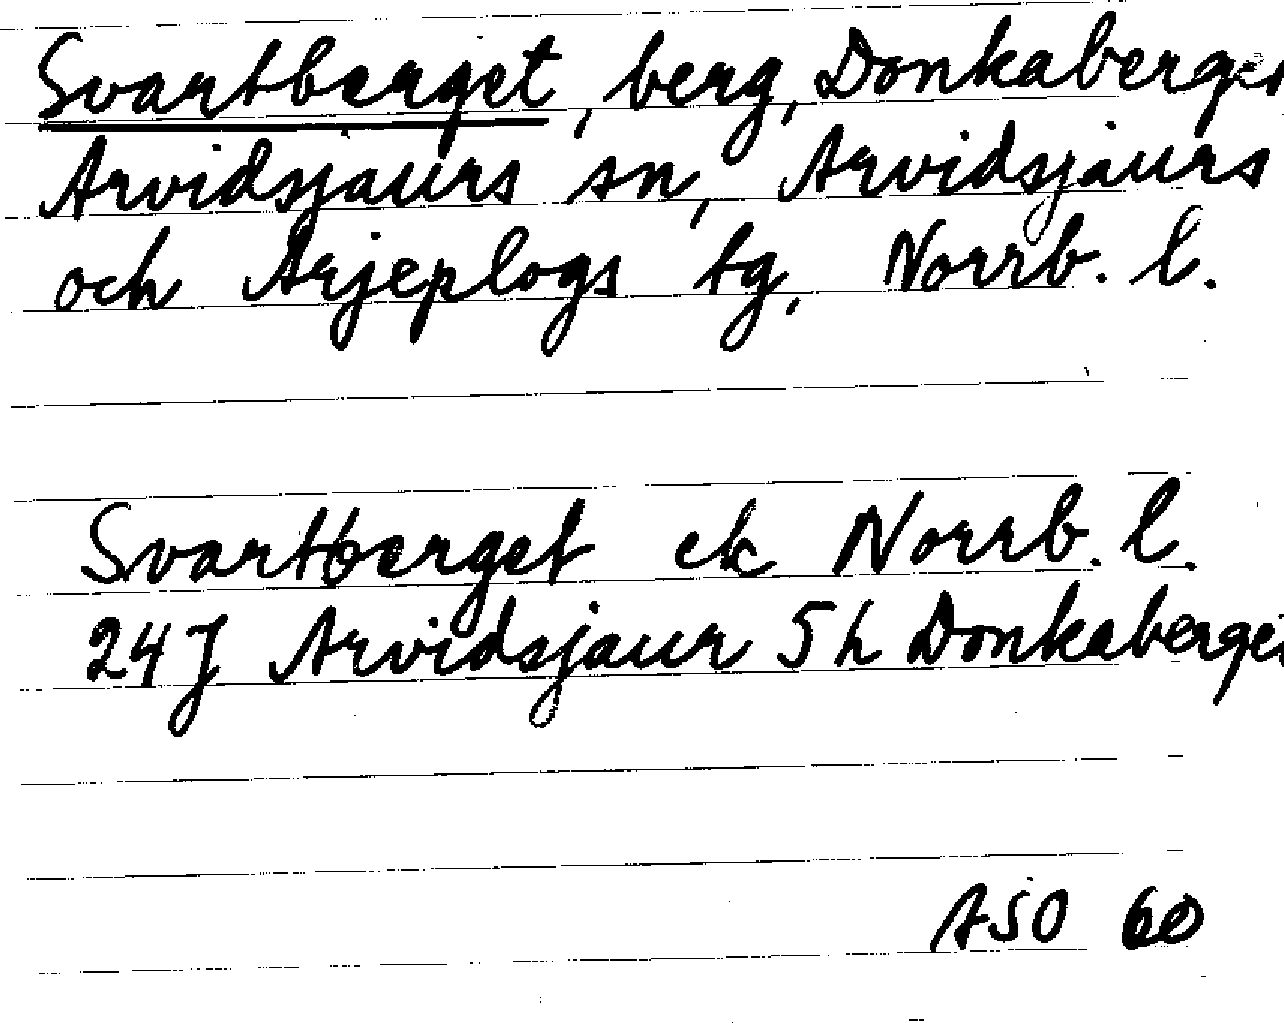 Svartberget, berg, Donkaberget
Arvidsjaurs sn, Arvidsjaurs
och Arjeplogs tg, Norrb. l.
Svartberget ek Norrb. l.
24J Arvidsjaur 5h Donkaberget
ASO 60